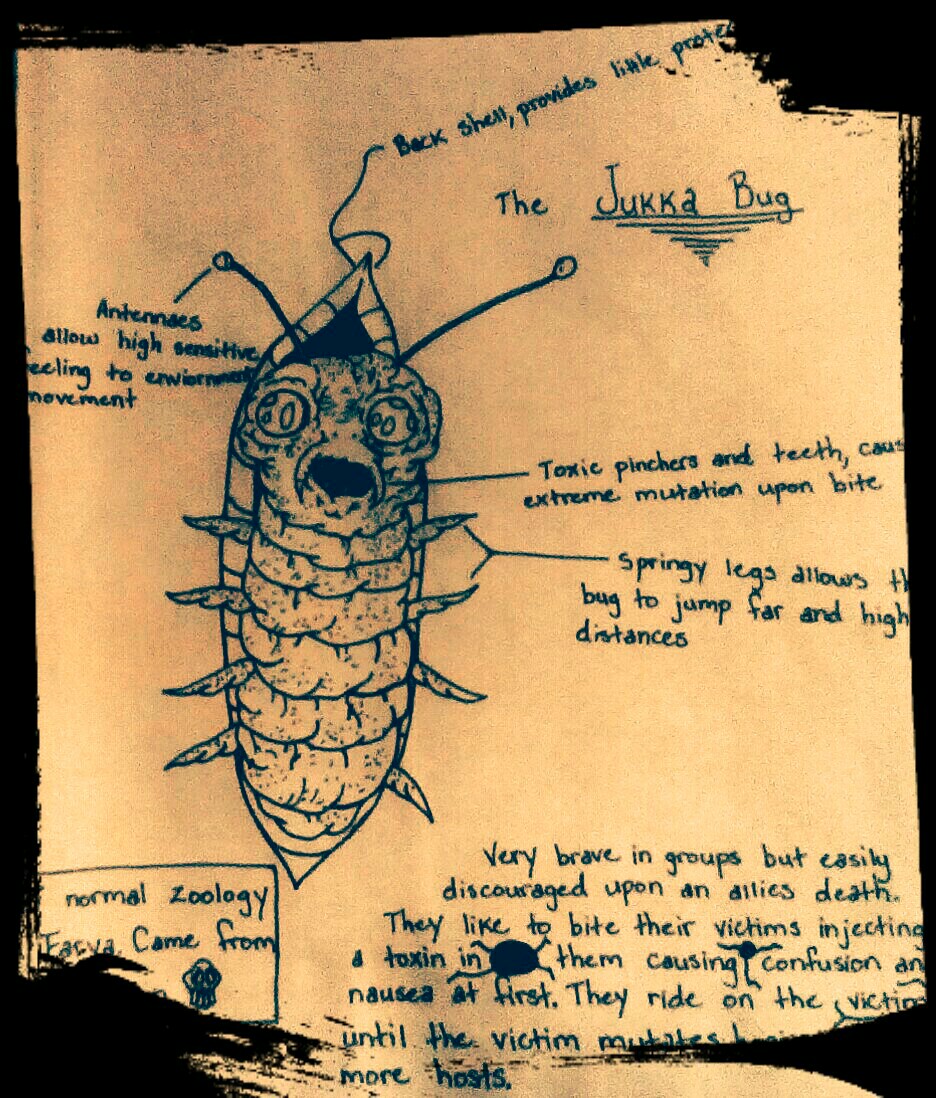 Back shell, provides little protec
The Jukka Bug
Antennaes
allow high sensitive
eeling to enviornmen
movement
Toxic pinchers and teeth, caus
extreme mutation upon bite
Springy legs allows th
bug to jump far and high
distances
Very brave in groups but easily
discouraged upon an allies death.
They like to bite their victims injecting
a toxin in them causing confusion an
nausea at first. They ride on the victim
until the victim mutates
more hosts.
normal zoology
Came from